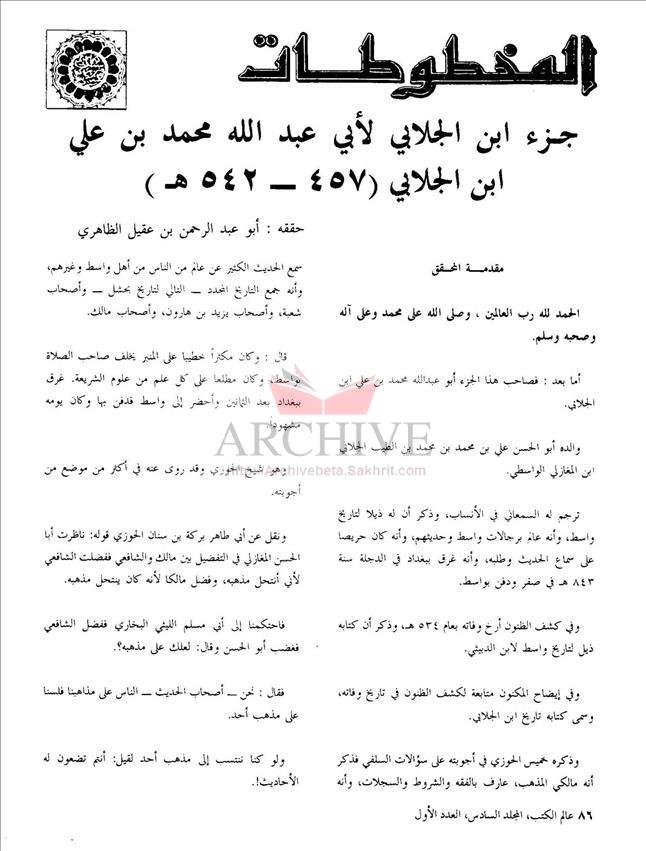 المخطوطات
جزء ابن الجلابي لأبي عبد الله محمد بن علي
ابن الجلابي (٤٥٧ ــ ٥٤٢ هـ)
حققه : أبو عبد الرحمن بن عقيل الظاهري
مقدمة المحقق
الحمد لله رب العالمين ، وصلى الله على محمد وعلى آله
وصحبه وسلم.
أما بعد : فصاحب هذا الجزء أبو عبدالله محمد بن علي ابن
الجلابي.
والده أبو الحسن علي بن محمد بن محمد بن الطيب الجلابي
ابن المغازلي الواسطي.
ترجم له السمعاني في الأنساب، وذكر أن له ذيلا لتاريخ
واسط، وأنه عالم برجالات واسط وحديثهم، وأنه كان حريصا
على سماع الحديث وطلبه، وأنه غرق ببغداد في الدجلة سنة
٨٤٣ هـ في صفر ودفن بواسط.
وفي كشف الظنون أرخ وفاته بعام ٥٣٤ هـ، وذكر أن كتابه
ذيل لتاريخ واسط لابن الدبيثي.
وفي إيضاح المكنون متابعة لكشف الظنون في تاريخ وفاته،
وسمى كتابه تاريخ ابن الجلابي.
وذكره خميس الحوزي في أجوبته على سؤالات السلفي فذكر
أنه مالكي المذهب، عارف بالفقه والشروط والسجلات، وأنه
سمع الحديث الكثير عن عالم من الناس من أهل واسط وغيرهم،
وأنه جمع التاريخ المجدد ــ التالي لتاريخ بحشل ــ وأصحاب
شعبة، وأصحاب يزيد بن هارون، وأصحاب مالك.
قال : وكان مكثراً خطيبا على المنبر يخلف صاحب الصلاة
بواسط، وكان مطلعا على كل علم من علوم الشريعة. غرق
ببغداد بعد الثمانين وأحضر إلى واسط فدفن بها وكان يومه
مشهوداً.
وهو شيخ الحوزي وقد روى عنه في أكثر من موضع من
أجوبته.
ونقل عن أبي طاهر بركة بن سنان الحوزي قوله: ناظرت أبا
الحسن المغازلي في التفضيل بين مالك والشافعي ففضلت الشافعي
لأني أنتحل مذهبه، وفضل مالكا لأنه كان ينتحل مذهبه.
فاحتكمنا إلى أبي مسلم الليثي البخاري ففضل الشافعي
فغضب أبو الحسن وقال: لعلك على مذهبه؟.
فقال : نحن ــ أصحاب الحديث ــ الناس على مذاهبنا فلسنا
على مذهب أحد.
ولو كنا ننتسب إلى مذهب أحد لقيل: أنتم تضعون له
الأحاديث!.
ARCHIVE
http://Archivebeta.Sakhrit.com
٨٦ عالم الكتب، المجلد السادس، العدد الأول